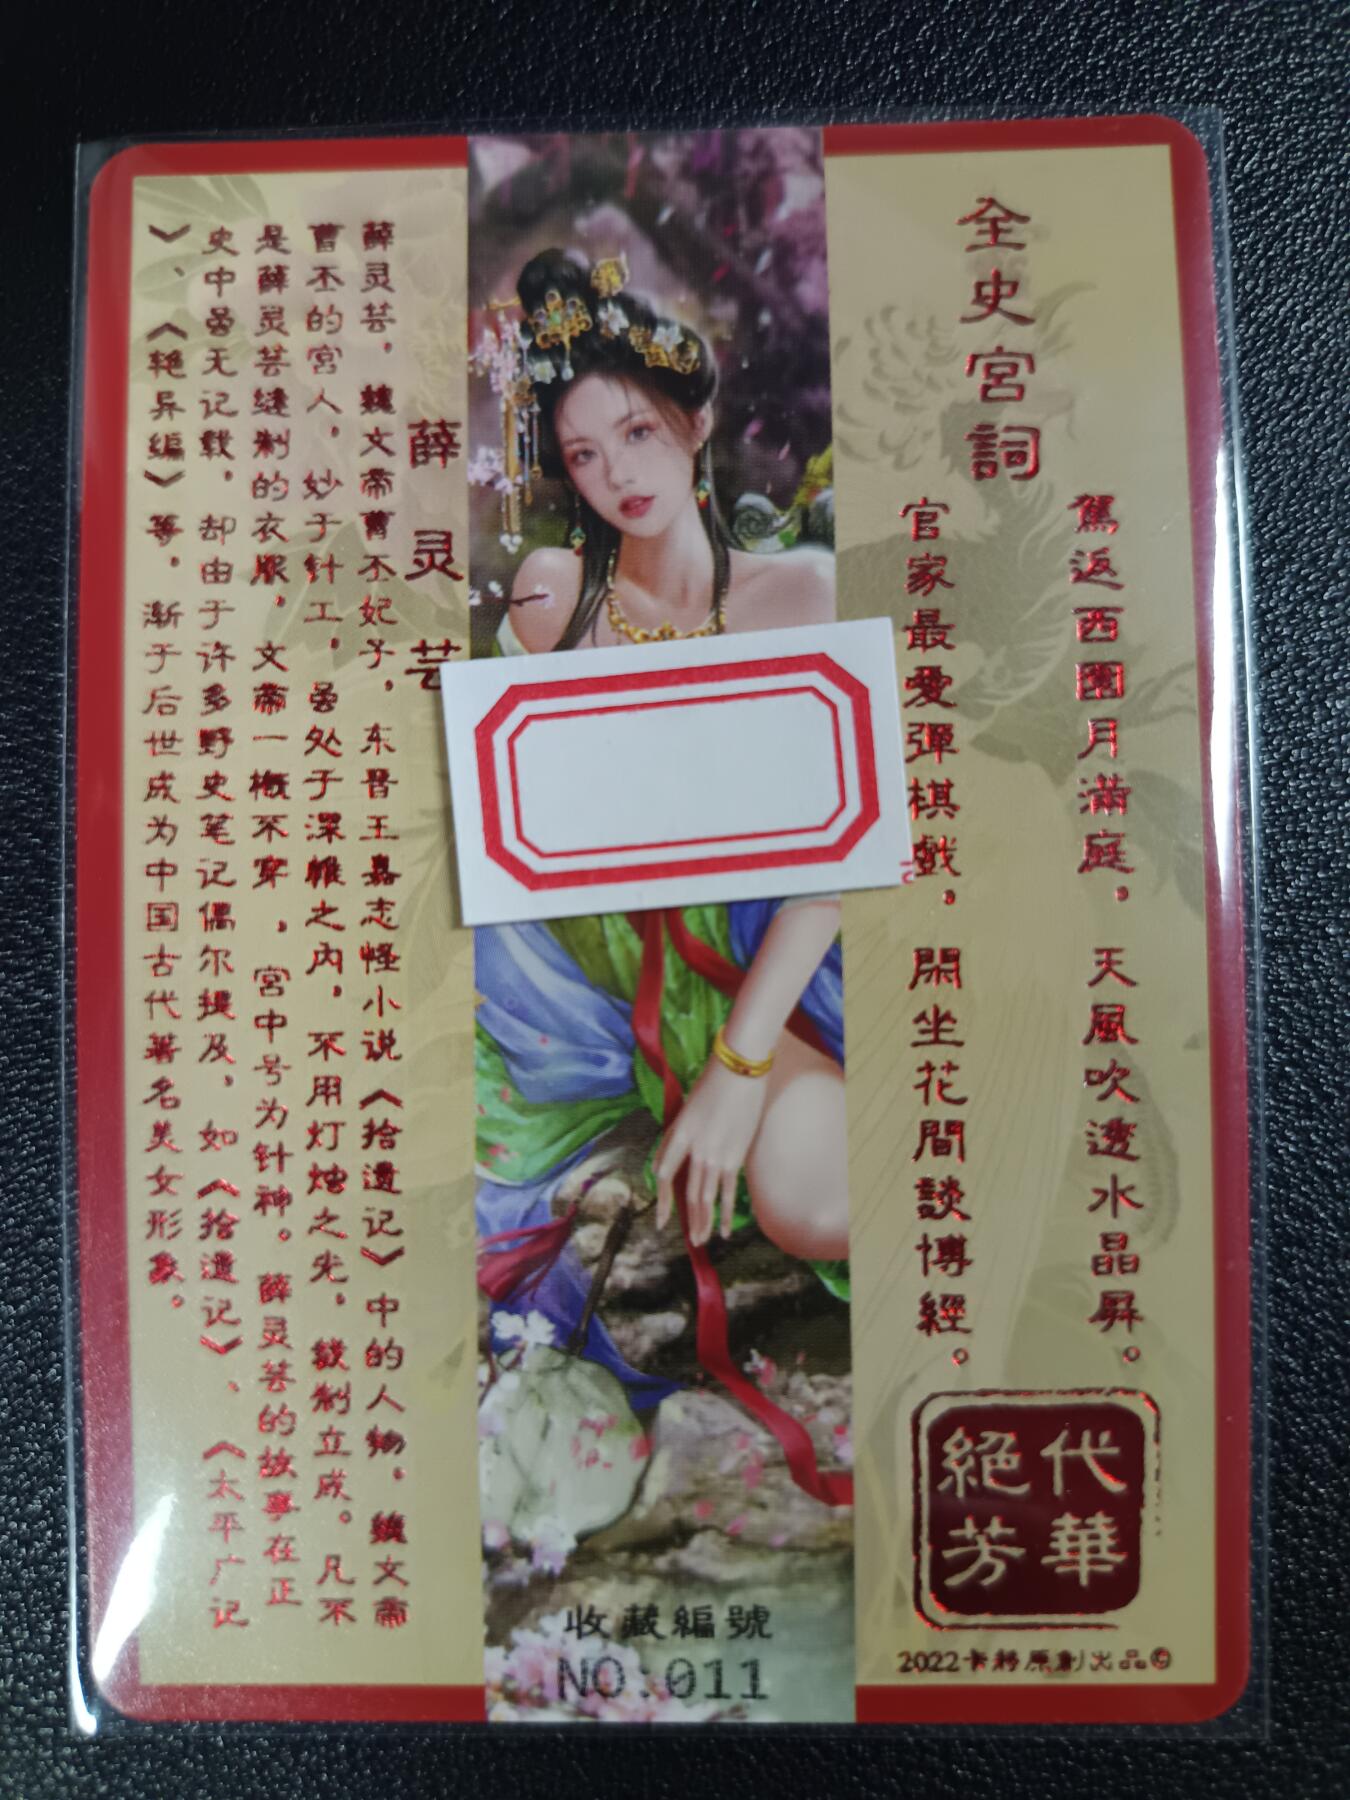 全史宮詞
駕返西園月滿庭，天風吹透水晶屏。
官家最愛彈棋戲，閑坐花間談博經。
絕代
芳華
2022卡 原創出品©
收藏編號
NO:011
薛灵芸
薛灵芸，魏文帝曹丕妃子，东晋王嘉志怪小说《拾遗记》中的人物。魏文帝
曹丕的宫人，妙于针工，虽处于深帷之内，不用灯烛之光，裁制立成。凡不
是薛灵芸缝制的衣服，文帝一概不穿，宫中号为针神。薛灵芸的故事在正
史中虽无记载，却由于许多野史笔记偶尔提及，如《拾遗记》、《太平广记
》、《艳异编》等，渐于后世成为中国古代著名美女形象。